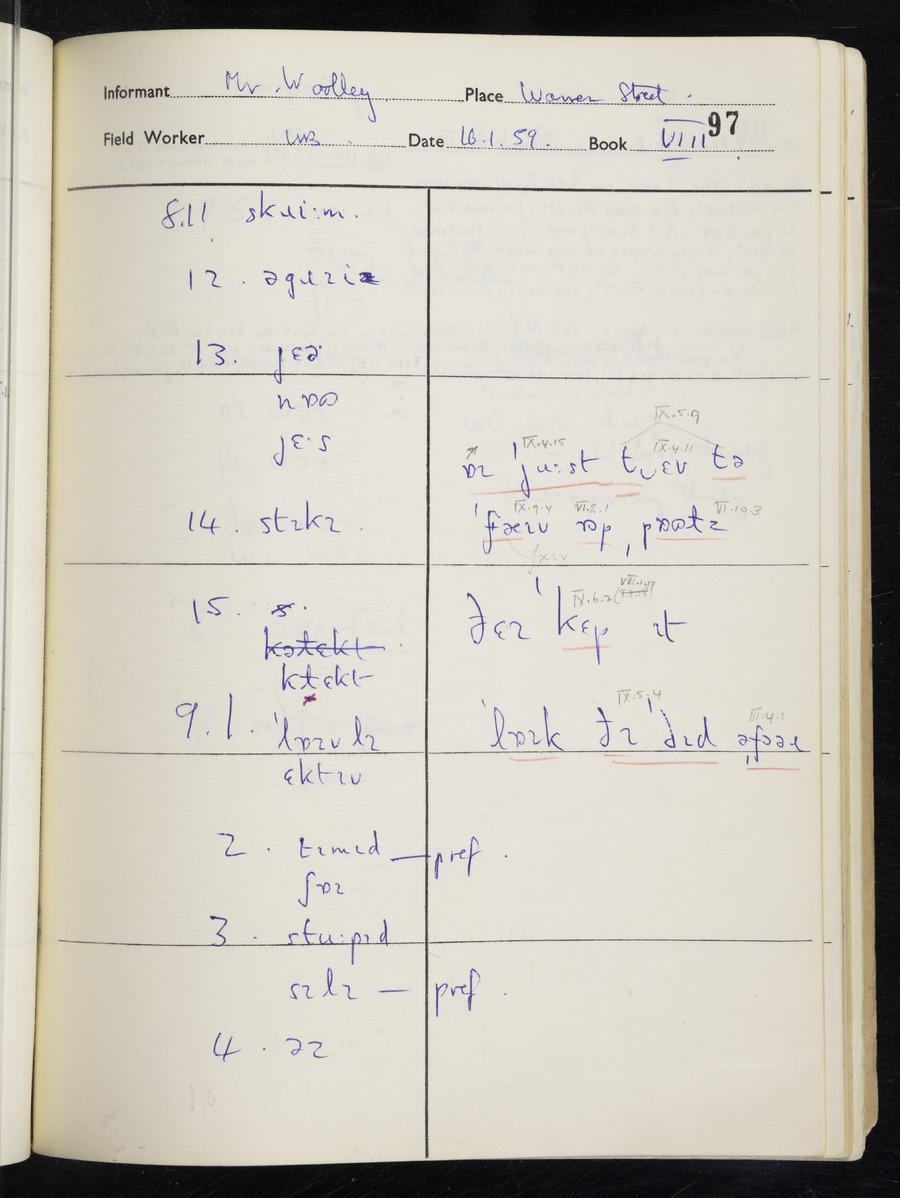 Informant Mr. Woolley. Place Warren Street.
97
Field Worker WB. Date 16.1.59. Book VIII
8.11 skɹiːm.
12. əgɹɛɪ
13. jɛə
nɒʊ
jɛˑs
IX.5.9
IX.4.15 IX.4.11
ɒɪ ˈjuːst t‿ɛv tə
IX.9.4 VI.2.1 VI.10.3
14. stɪkɪ.
ˈfæɪv ɒp, pɒʊtɪ
fɒɪv
15. s.
IV.6.2
ðɛɪ ˈkɛp ɪt
kətɛkt
ktɛkt
IX.5.4
III.4.1
9.1. ˈlɒɪvlɪ
ˈlɒɪk ðɪ ˈðɪd
ɛktɪv
2. tɪmɪd — pref.
ʃɒɪ
3. stuːpɪd
sɪlɪ — pref.
4. əɪ